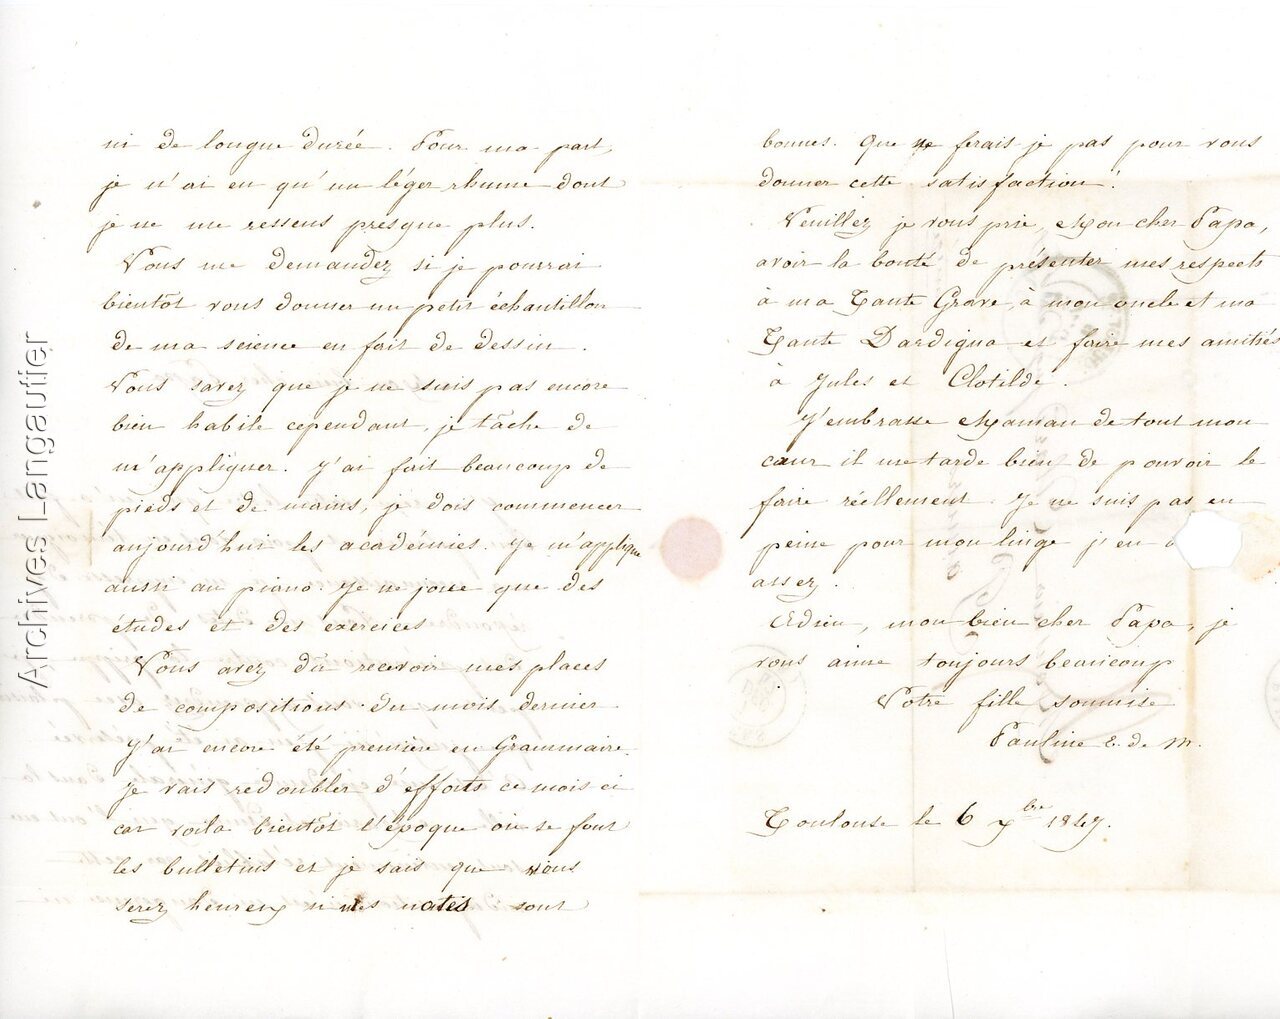 ni de longue durée. Pour ma part,
je n'ai eu qu'un léger rhume dont
je ne me ressens presque plus.
Vous me demandez si je pourrai
bientôt vous donner un petit échantillon
de ma science en fait de dessin.
Vous savez que je ne suis pas encore
bien habile cependant, je tâche de
m'appliquer. J'ai fait beaucoup de
pieds et de mains, je dois commencer
aujourd'hui les académies. Je m'applique
aussi au piano. Je ne joue que des
études et des exercices
Vous avez dû recevoir mes places
de compositions du mois dernier
J'ai encore été première en Grammaire.
Je vais redoubler d'efforts ce mois ci
car voila bientôt l'époque où se font
les bulletins et je sais que vous
serez heureux si mes notes sont
bonnes. Que ne ferais-je pas pour vous
donner cette satisfaction!
Veuillez je vous prie, Mon cher Papa,
avoir la bonté de présenter mes respects
à ma Tante Grave, à mon oncle et ma
Tante Dardigna et faire mes amitiés
à Jules et Clotilde.
J'embrasse Maman de tout mon
cœur il me tarde bien de pouvoir le
faire réellement. Je ne suis pas en
peine pour mon linge j'en
assez.
Adieu, mon bien cher Papa, je
vous aime toujours beaucoup
Votre fille soumise
Pauline E. de M.
Toulouse le 6 Xbre 1847.
Archives Langautier